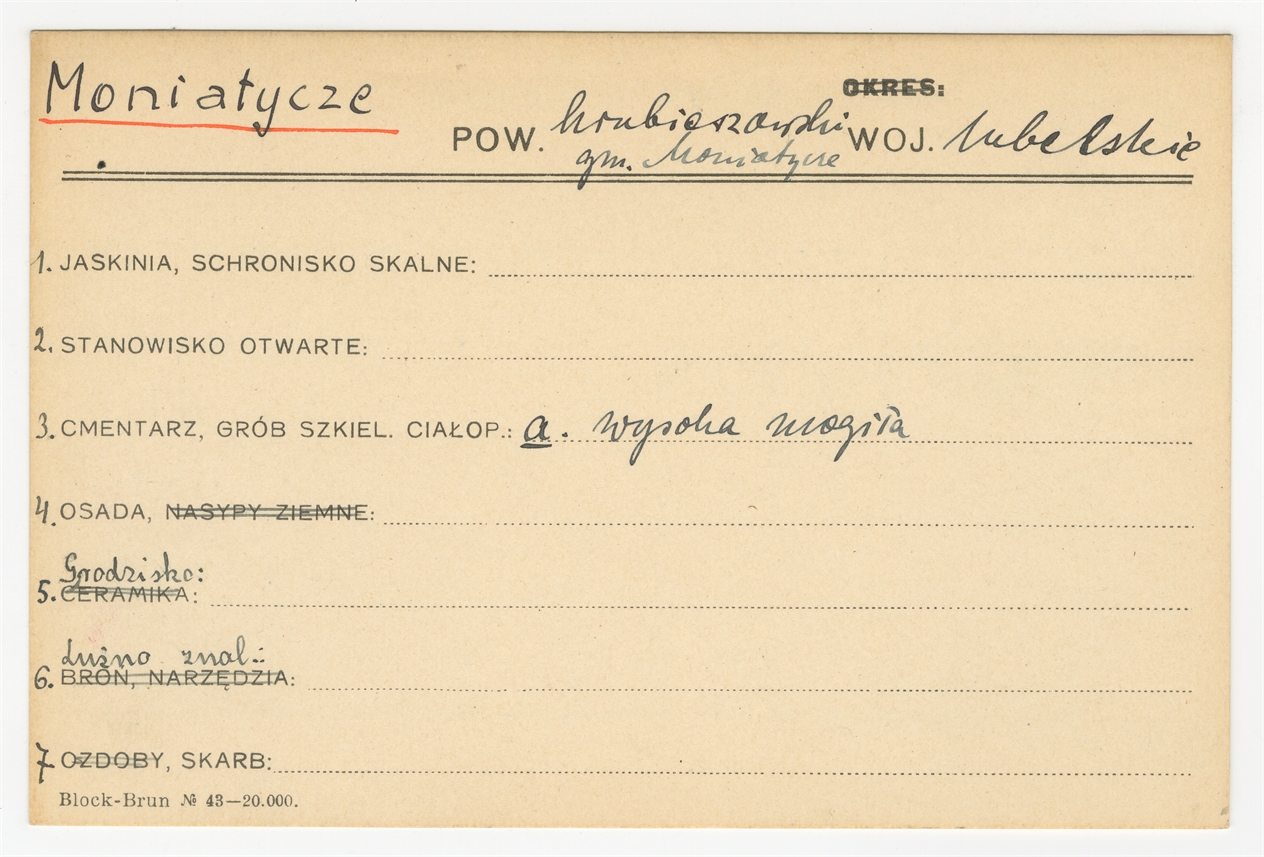 Moniatycze
OKRES:
POW. hrubieszowski WOJ. lubelskie
gm. Moniatycze
1. JASKINIA, SCHRONISKO SKALNE:
2. STANOWISKO OTWARTE:
3. CMENTARZ, GRÓB SZKIEL. CIAŁOP.: a. wysoka mogiła
4. OSADA, NASYPY ZIEMNE:
Grodzisko:
5. CERAMIKA:
Luźno znal.:
6. BROŃ, NARZĘDZIA:
7 OZDOBY, SKARB:
Block-Brun № 43—20.000.